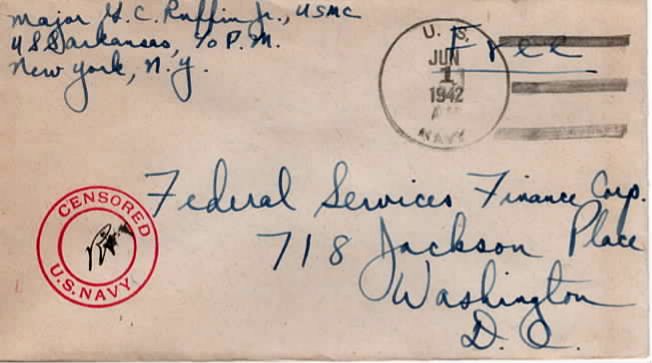 Major G. C. Ruffin Jr., USMC
USS Arkansas, % P.M.
New York, N.Y.
U. S.
JUN
1
1942
NAVY
Free
Federal Services Finance Corp.
718 Jackson Place
Washington
D. C.
CENSORED
U.S. NAVY